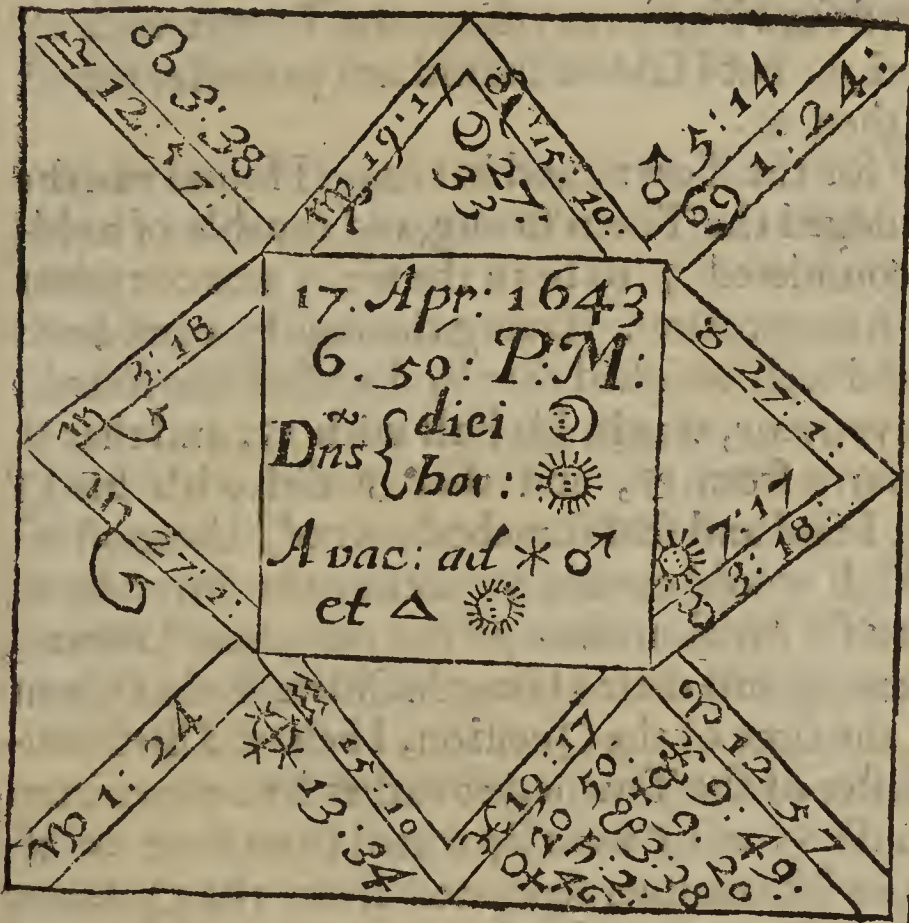 ♎ 12:57:
☊ 3:38
♍ 19:17
☽ 27:
33
♌ 15:10:
♂ 5:14
♋ 1:24:
17. Apr: 1643
6. 50: P:M:
Dns { diei ☽
hor: ☉
A vac: ad ⚹ ♂
et △ ☉
♏ 3:18
♏ 27:1:
♉ 27:1:
☉ 7:17
♉ 3:18:
♑ 1:24
13:34
♒ 15:10
♓ 19:17
20 50.
9:49:
9:20:
☋ 3:38
♈ 12 57